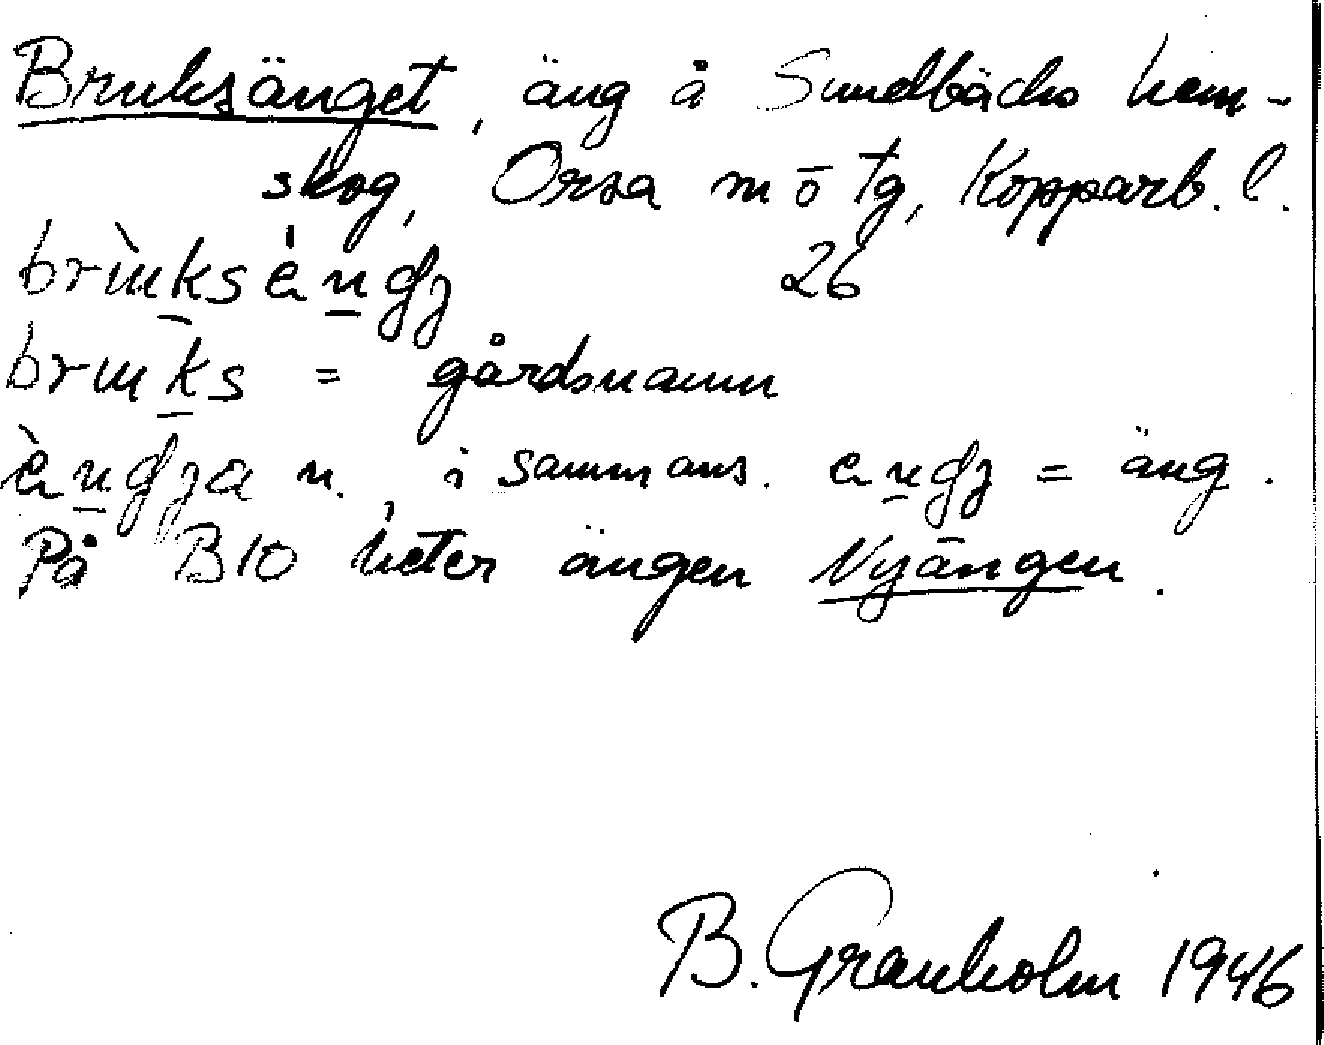 Bruksänget, äng å Sundbäcks hem-
skog, Orsa m o tg, Kopparb. l.
26
bruks = gårdsnamn
n., i sammans. = äng.
På B10 heter ängen Nyängen.
B. Granholm 1946